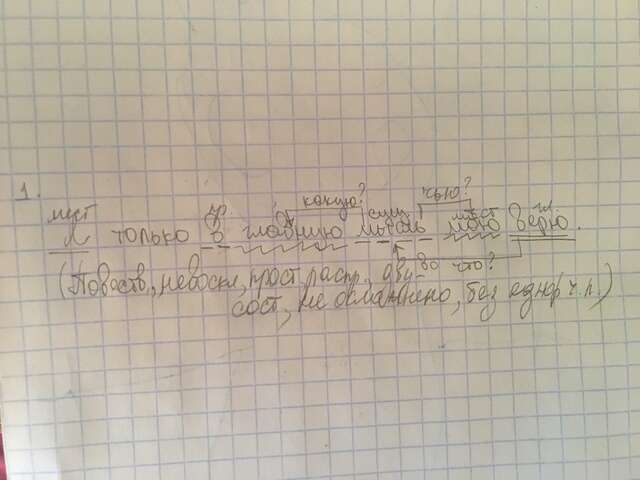 1.
какую? чью?
мест пр сущ мест гл
Я только в главную мысль мою верю.
во что?
(Повеств., невоскл., прост, распр, дву-
сост, не осложнено, без однор ч.п.)